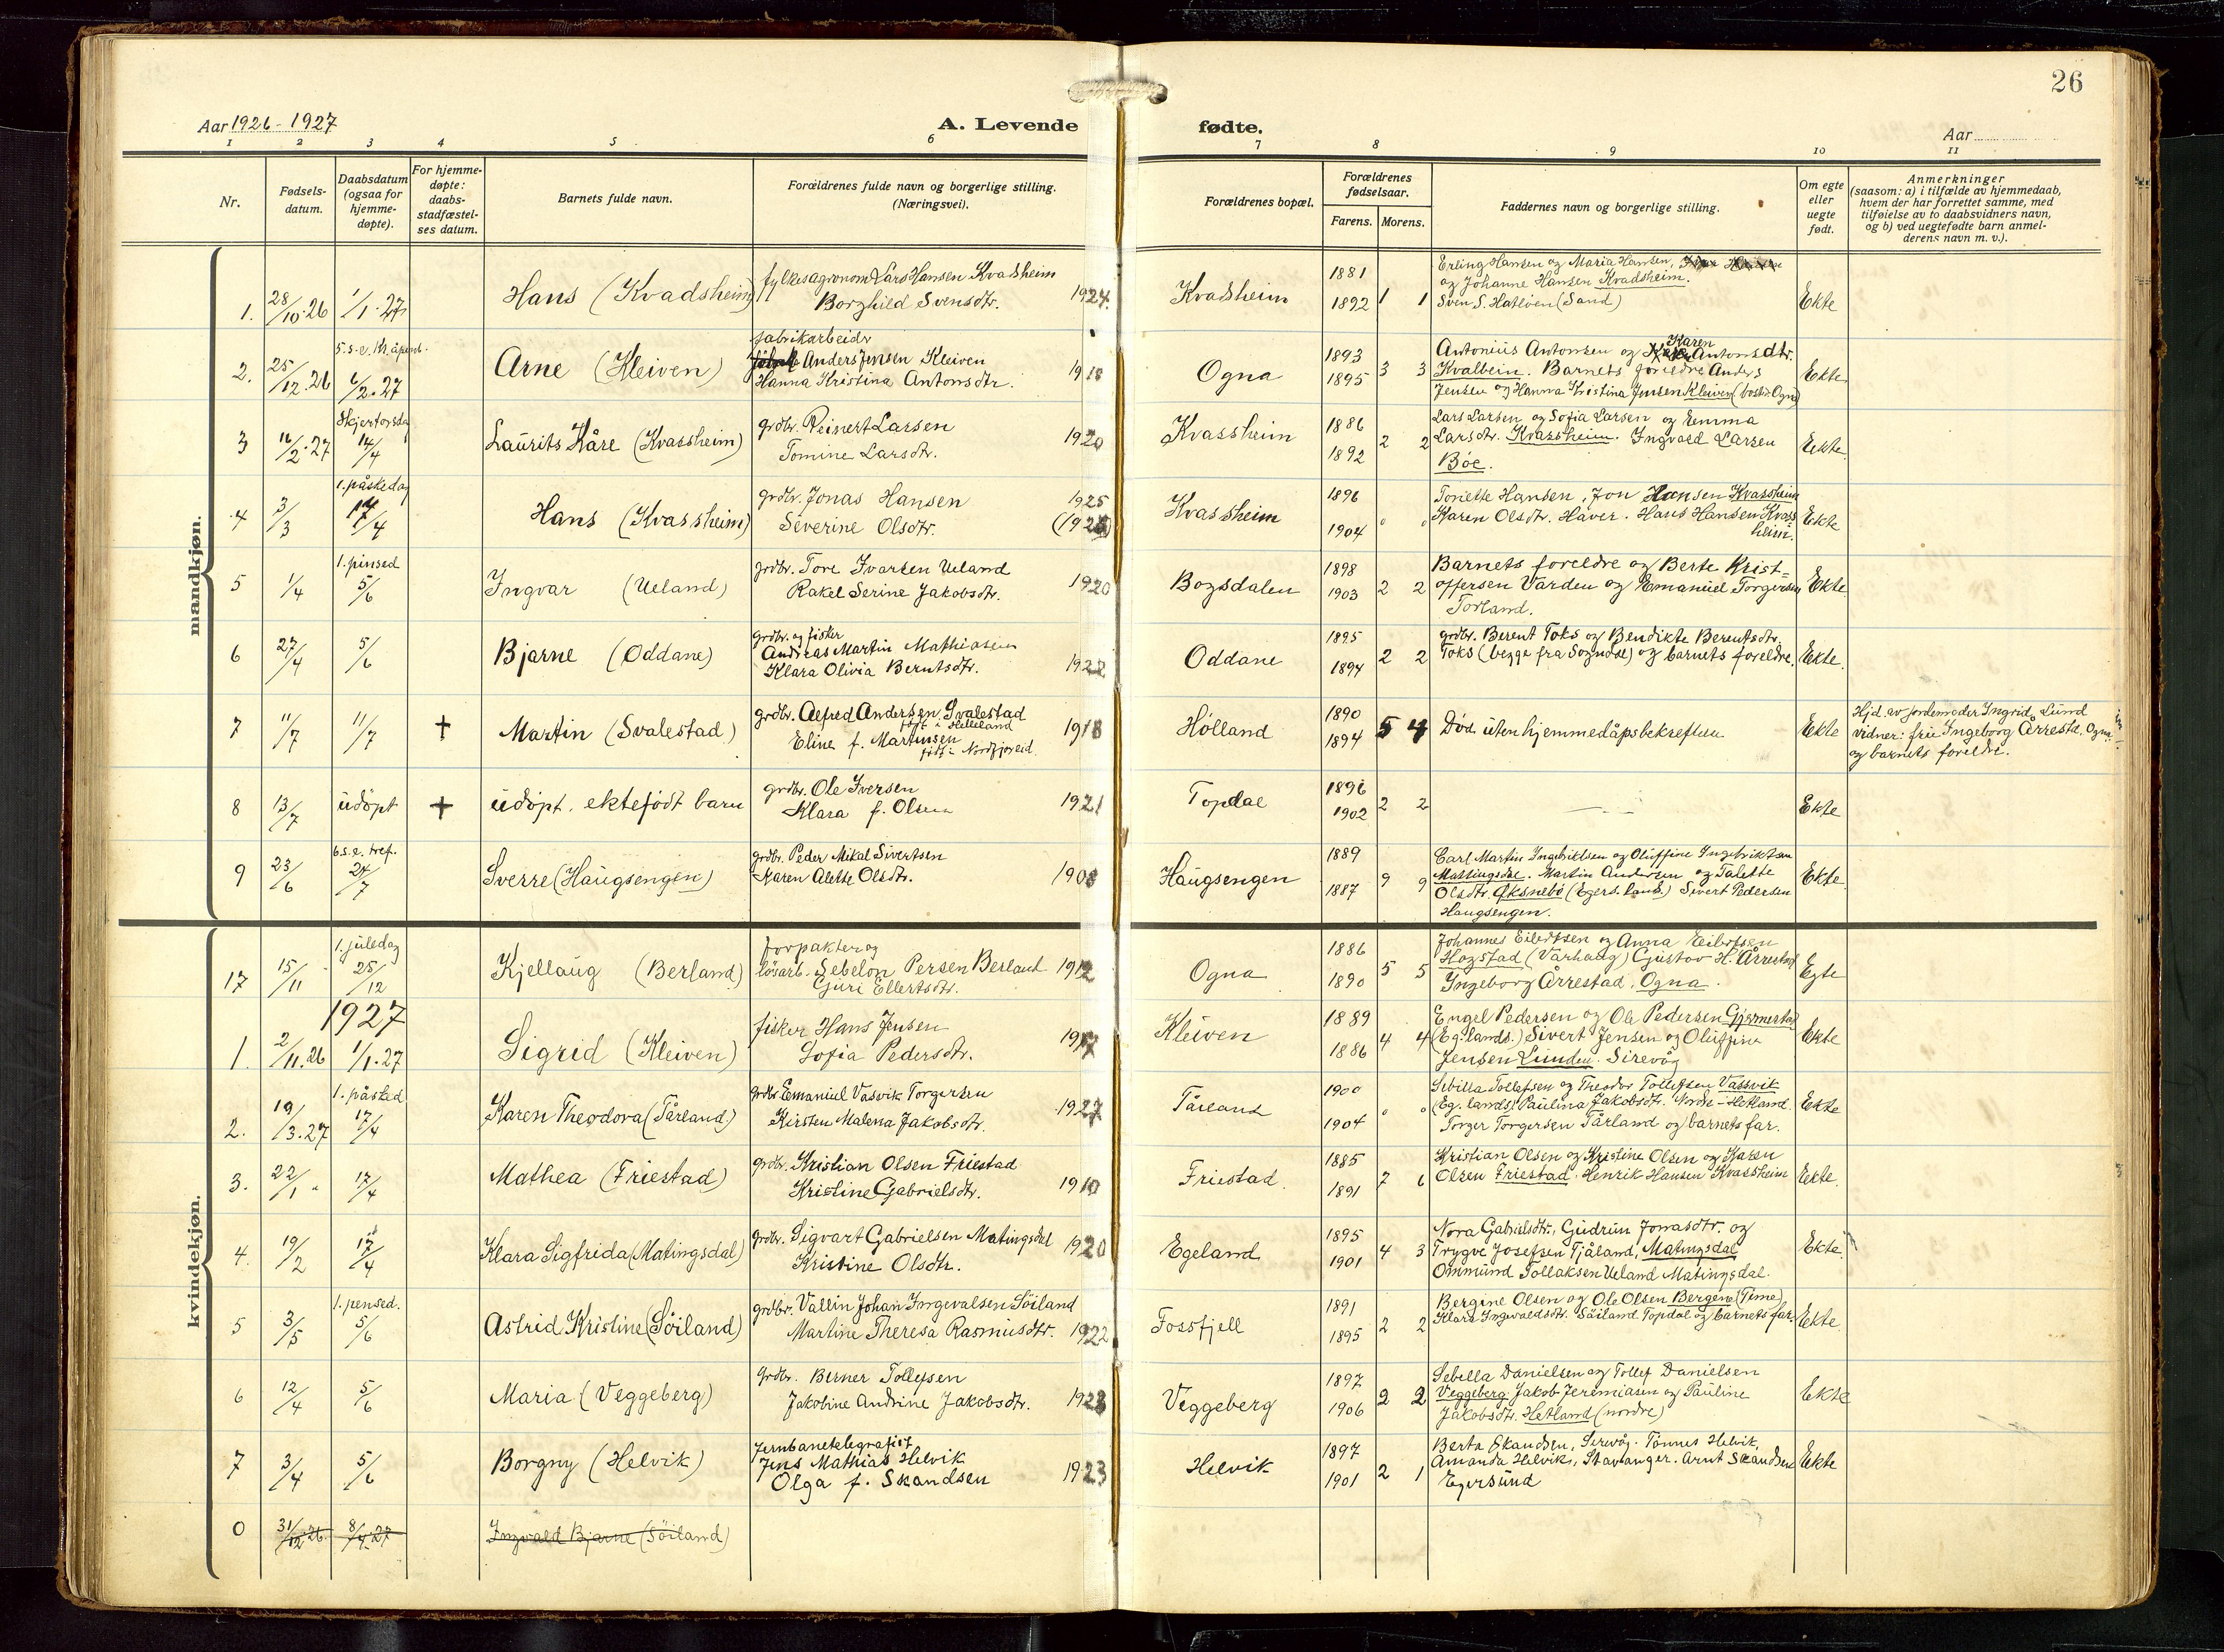 26
Aar 1926-1927
A. Levende
fødte.
Aar
1 2 3 4 5 6 7 8 9 10 11
Nr.
Fødsels-
datum.
Daabsdatum
(ogsaa for
hjemme-
døpte).
For hjemme-
døpte:
daabs-
stadfæstel-
ses datum.
Barnets fulde navn.
Forældrenes fulde navn og borgerlige stilling.
(Næringsvei).
Forældrenes bopæl.
Forældrenes
fødselsaar.
Farens. Morens.
Faddernes navn og borgerlige stilling.
Om egte
eller
uegte
født.
Anmerkninger
(saasom: a) i tilfælde av hjemmedaab,
hvem der har forrettet samme, med
tilføielse av to daabsvidners navn,
og b) ved uegtefødte barn anmel-
derens navn m. v.).
mandkjøn.
1. 28/10.26 1/1.27 Hans (Kvadsheim)
fylkesagronom Lars Hansen Kvadsheim
Borghild Svensdtr. 1924.
Kvadsheim 1881 1892 1 1
Erling Hansen og Maria Hansen,
og Johanne Hansen Kvadsheim.
Sven S. Hatløen (Sand)
Ekte
2. 25/12.26 5.s.e.Kr.åpenb. 6/2.27 Arne (Kleiven)
fabrikarbeider
Anders Jensen Kleiven
Hanna Kristina Antonsdtr. 1918
Ogna 1893 1895 3 3
Karen
Antonius Antonsen og Antonsdtr.
Kvalbein. Barnets foreldre Anders
Jensen og Hanna Kristina Jensen Kleiven (bost. Ogna)
Ekte
3 16/2.27 Skjertorsdag 14/4 Laurits Kåre (Kvassheim)
grdbr. Reinert Larsen
Tomine Larsdtr. 1920
Kvassheim 1886 1892 2 2
Lars Larsen og Sofia Larsen og Emma
Larsdtr. Kvassheim. Ingvald Larsen
Bøe.
Ekte
4 3/3 1. påskedag 17/4 Hans (Kvassheim)
grdbr. Jonas Hansen 1925
Severine Olsdtr.
Kvassheim 1896 1904 0 0
Toriette Hansen, Jon Hansen Kvassheim
Karen Olsdtr. Haver. Hans Hansen Kvass
heim.
Ekte
5 1/4 1. pinsed 5/6 Ingvar (Ueland)
grdbr. Tore Ivarsen Ueland
Rakel Serine Jakobsdtr. 1920
Bogsdalen 1898 1903 2 2
Barnets foreldre og Berte Krist=
offersen Varden og Emanuel Torgersen
Torland.
Ekte
6 27/4 5/6 Bjarne (Oddane)
grdbr. og fisker
Andreas Martin Mathiasen
Klara Olivia Berntsdtr. 1922
Oddane 1895 1894 2 2
grdbr. Berent Toks og Bendikte Berentsdtr.
Toks (begge fra Sogndal) og barnets foreldre.
Ekte.
7 11/7 11/7 † Martin (Svalestad)
grdbr. Alfred Andersen Svalestad
født i Helleland
Eline f. Martinsen
født i Nordfjoreid 1918
Hölland 1890 1894 5 4
Död uten hjemmedåpsbekreftelse
Ekte
Hjd. av jordemoder Ingrid Lund
vidner: frü Ingeborg Årrestad, Ogna
og barnets foreldre.
8 13/7 üdöpt † üdöpt. ektefödt barn
grdbr. Ole Iversen
Klara f. Olsen 1921
Topdal 1896 1902 2 2
Ekte
9 23/6 6.s.e. tref. 24/7 Sverre (Haugsengen)
grdbr. Peder Mikal Sivertsen
Karen Alette Olsdtr. 1908
Haugsengen 1889 1887 9 9
Carl Martin Ingebriktsen og Oluffine Ingebriktsen
Matingsdal. Martin Andersen og Talette
Olsdtr. Øksnebö (Egers. lands.) Sivert Pedersen
Haugsengen.
Ekte
kvindekjøn.
17 15/11 1. juledag 25/12 Kjellaug (Berland)
forpakter og
lösarb. Sebelon Persen Berland 1912
Guri Ellertsdtr.
Ogna 1886 1890 5 5
Johannes Eilertsen og Anna Eilertsen
Hogstad (Varhaug) Gustav H. Årrestad
Ingeborg Årrestad. Ogna.
Egte
1927
1. 2/11.26 1/1.27 Sigrid (Kleiven)
fisker Hans Jensen
Sofia Pedersdtr. 1917
Kleiven 1889 1886 4 4
Engel Pedersen og Ole Pedersen Gjermestad
(Eg. lands.) Sivert Jensen og Oluffine
Jensen Lunden. Sirevåg
Ekte
2. 19/3.27 1. påsked 17/4 Karen Theodora (Tårland)
grdbr. Emanuel Vasvik Torgersen
Kirsten Malena Jakobsdtr. 1927
Tårland 1900 1904 0 0
Sibilla Tollefsen og Theodor Tollefsen Vassvik
(Eg. lands) Paulina Jakobsdtr. Nordre-Hetland
Torger Torgersen Tårland og barnets far.
Ekte
3. 22/1 17/4 Mathea (Friestad)
grdbr. Kristian Olsen Friestad
Kristine Gabrielsdtr. 1910
Friestad 1885 1891 7 6
Kristian Olsen og Kristine Olsen og Karen
Olsen Friestad. Henrik Hansen Kvassheim
Ekte.
4. 19/2 17/4 Klara Sigfrida (Matingsdal)
grdbr. Sigvart Gabrielsen Matingsdal 1920
Kristine Olsdtr.
Egeland 1895 1901 4 3
Nora Gabrielsdtr., Gudrun Jonasdtr. og
Trygve Josefsen Tjåland, Matingsdal
Ommund Tollaksen Ueland Matingsdal.
Ekte.
5 3/5 1. pensed. 5/6 Astrid Kristine (Söiland)
grdbr. Vallin Johan Ingevalsen Söiland
Martine Theresa Rasmusdtr. 1922
Fossfjell 1891 1895 2 2
Bergine Olsen og Ole Olsen Bergene (Time),
Klara Ingvaldsdtr. Söiland Topdal og barnets far.
Ekte
6 12/4 5/6 Maria (Veggeberg)
grdbr. Berner Tollefsen
Jakobine Andrine Jakobsdtr. 1923
Veggeberg 1897 1906 2 2
Sebella Danielsen og Tollef Danielsen
Veggeberg. Jakob Jeremiasen og Pauline
Jakobsdtr. Hetland (nordre)
Ekte
7 3/4 5/6 Borgny (Helvik)
Jernbanetelegrafist
Jens Mathias Helvik
Olga f. Skandsen 1923
Helvik 1897 1901 2 1
Berta Skandsen, Sirevåg. Tönnes Helvik,
Amanda Helvik, Stavanger. Arnt Skandsen
Egersund
Ekte
0 31/12 26. 8/4 27 Ingvald Bjarne (Söiland)